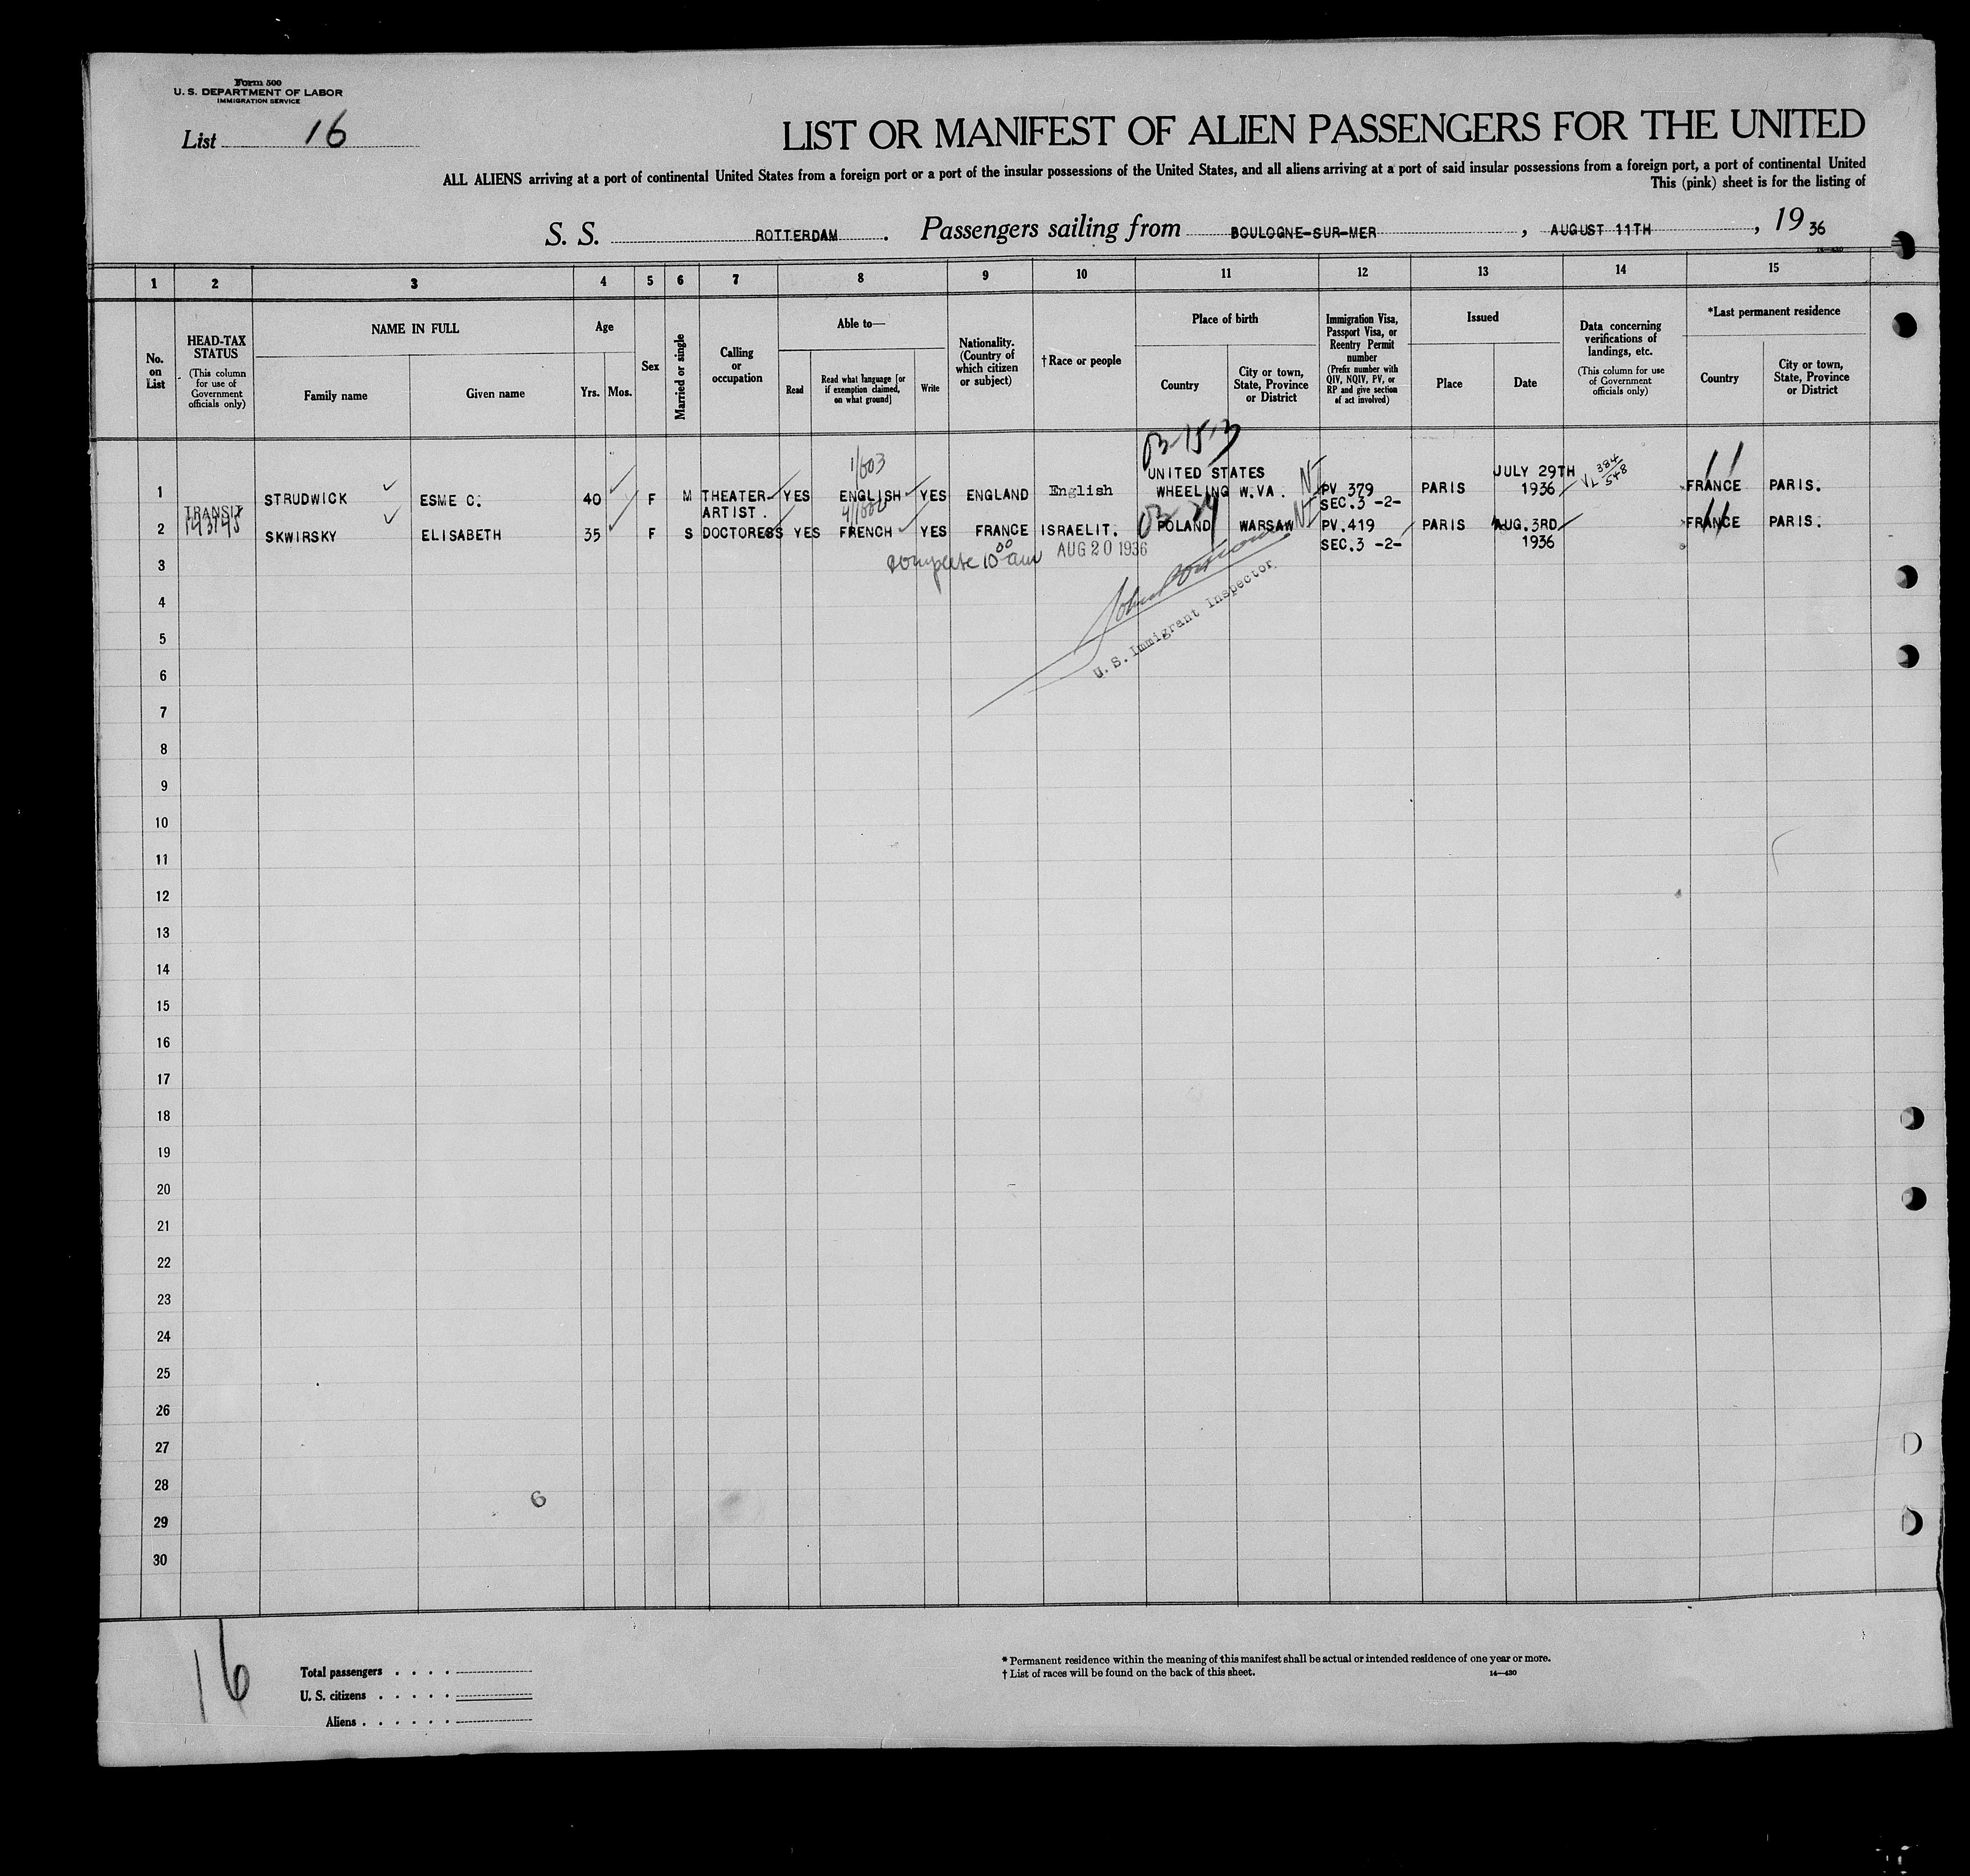 Form 500
U. S. DEPARTMENT OF LABOR
IMMIGRATION SERVICE
List 16
LIST OR MANIFEST OF ALIEN PASSENGERS FOR THE UNITED
ALL ALIENS arriving at a port of continental United States from a foreign port or a port of the insular possessions of the United States, and all aliens arriving at a port of said insular possessions from a foreign port, a port of continental United
This (pink) sheet is for the listing of
S. S. ROTTERDAM. Passengers sailing from BOULOGNE-SUR-MER, AUGUST 11TH, 19 36
14—430
1 2 3 4 5 6 7 8 9 10 11 12 13 14 15
No. on List
HEAD-TAX STATUS
(This column for use of Government officials only)
NAME IN FULL
Family name
Given name
Age
Yrs. Mos.
Sex
Married or single
Calling or occupation
Able to—
Read
Read what language [or if exemption claimed, on what ground]
Write
Nationality. (Country of which citizen or subject)
† Race or people
Place of birth
Country
City or town, State, Province or District
Immigration Visa, Passport Visa, or Reentry Permit number
(Prefix number with QIV, NQIV, PV, or RP and give section of act involved)
Issued
Place
Date
Data concerning verifications of landings, etc.
(This column for use of Government officials only)
*Last permanent residence
Country
City or town, State, Province or District
03-15-3
1/603
UNITED STATES JULY 29TH 384/548
1 STRUDWICK ESME C. 40 F M THEATER- YES ENGLISH YES ENGLAND English WHEELING W.VA. PV 379 PARIS 1936 FRANCE PARIS.
ARTIST. SEC.3 -2-
TRANSIT
2 SKWIRSKY ELISABETH 35 F S DOCTORESS YES FRENCH YES FRANCE ISRAELIT. POLAND WARSAW PV.419 PARIS AUG.3RD FRANCE PARIS.
SEC.3 -2- 1936
10 00 am AUG 20 1936
U. S. Immigrant Inspector
3
4
5
6
7
8
9
10
11
12
13
14
15
16
17
18
19
20
21
22
23
24
25
26
27
28
6
29
30
16
Total passengers . . . .
U. S. citizens . . . . .
Aliens . . . . . .
* Permanent residence within the meaning of this manifest shall be actual or intended residence of one year or more.
† List of races will be found on the back of this sheet. 14—430